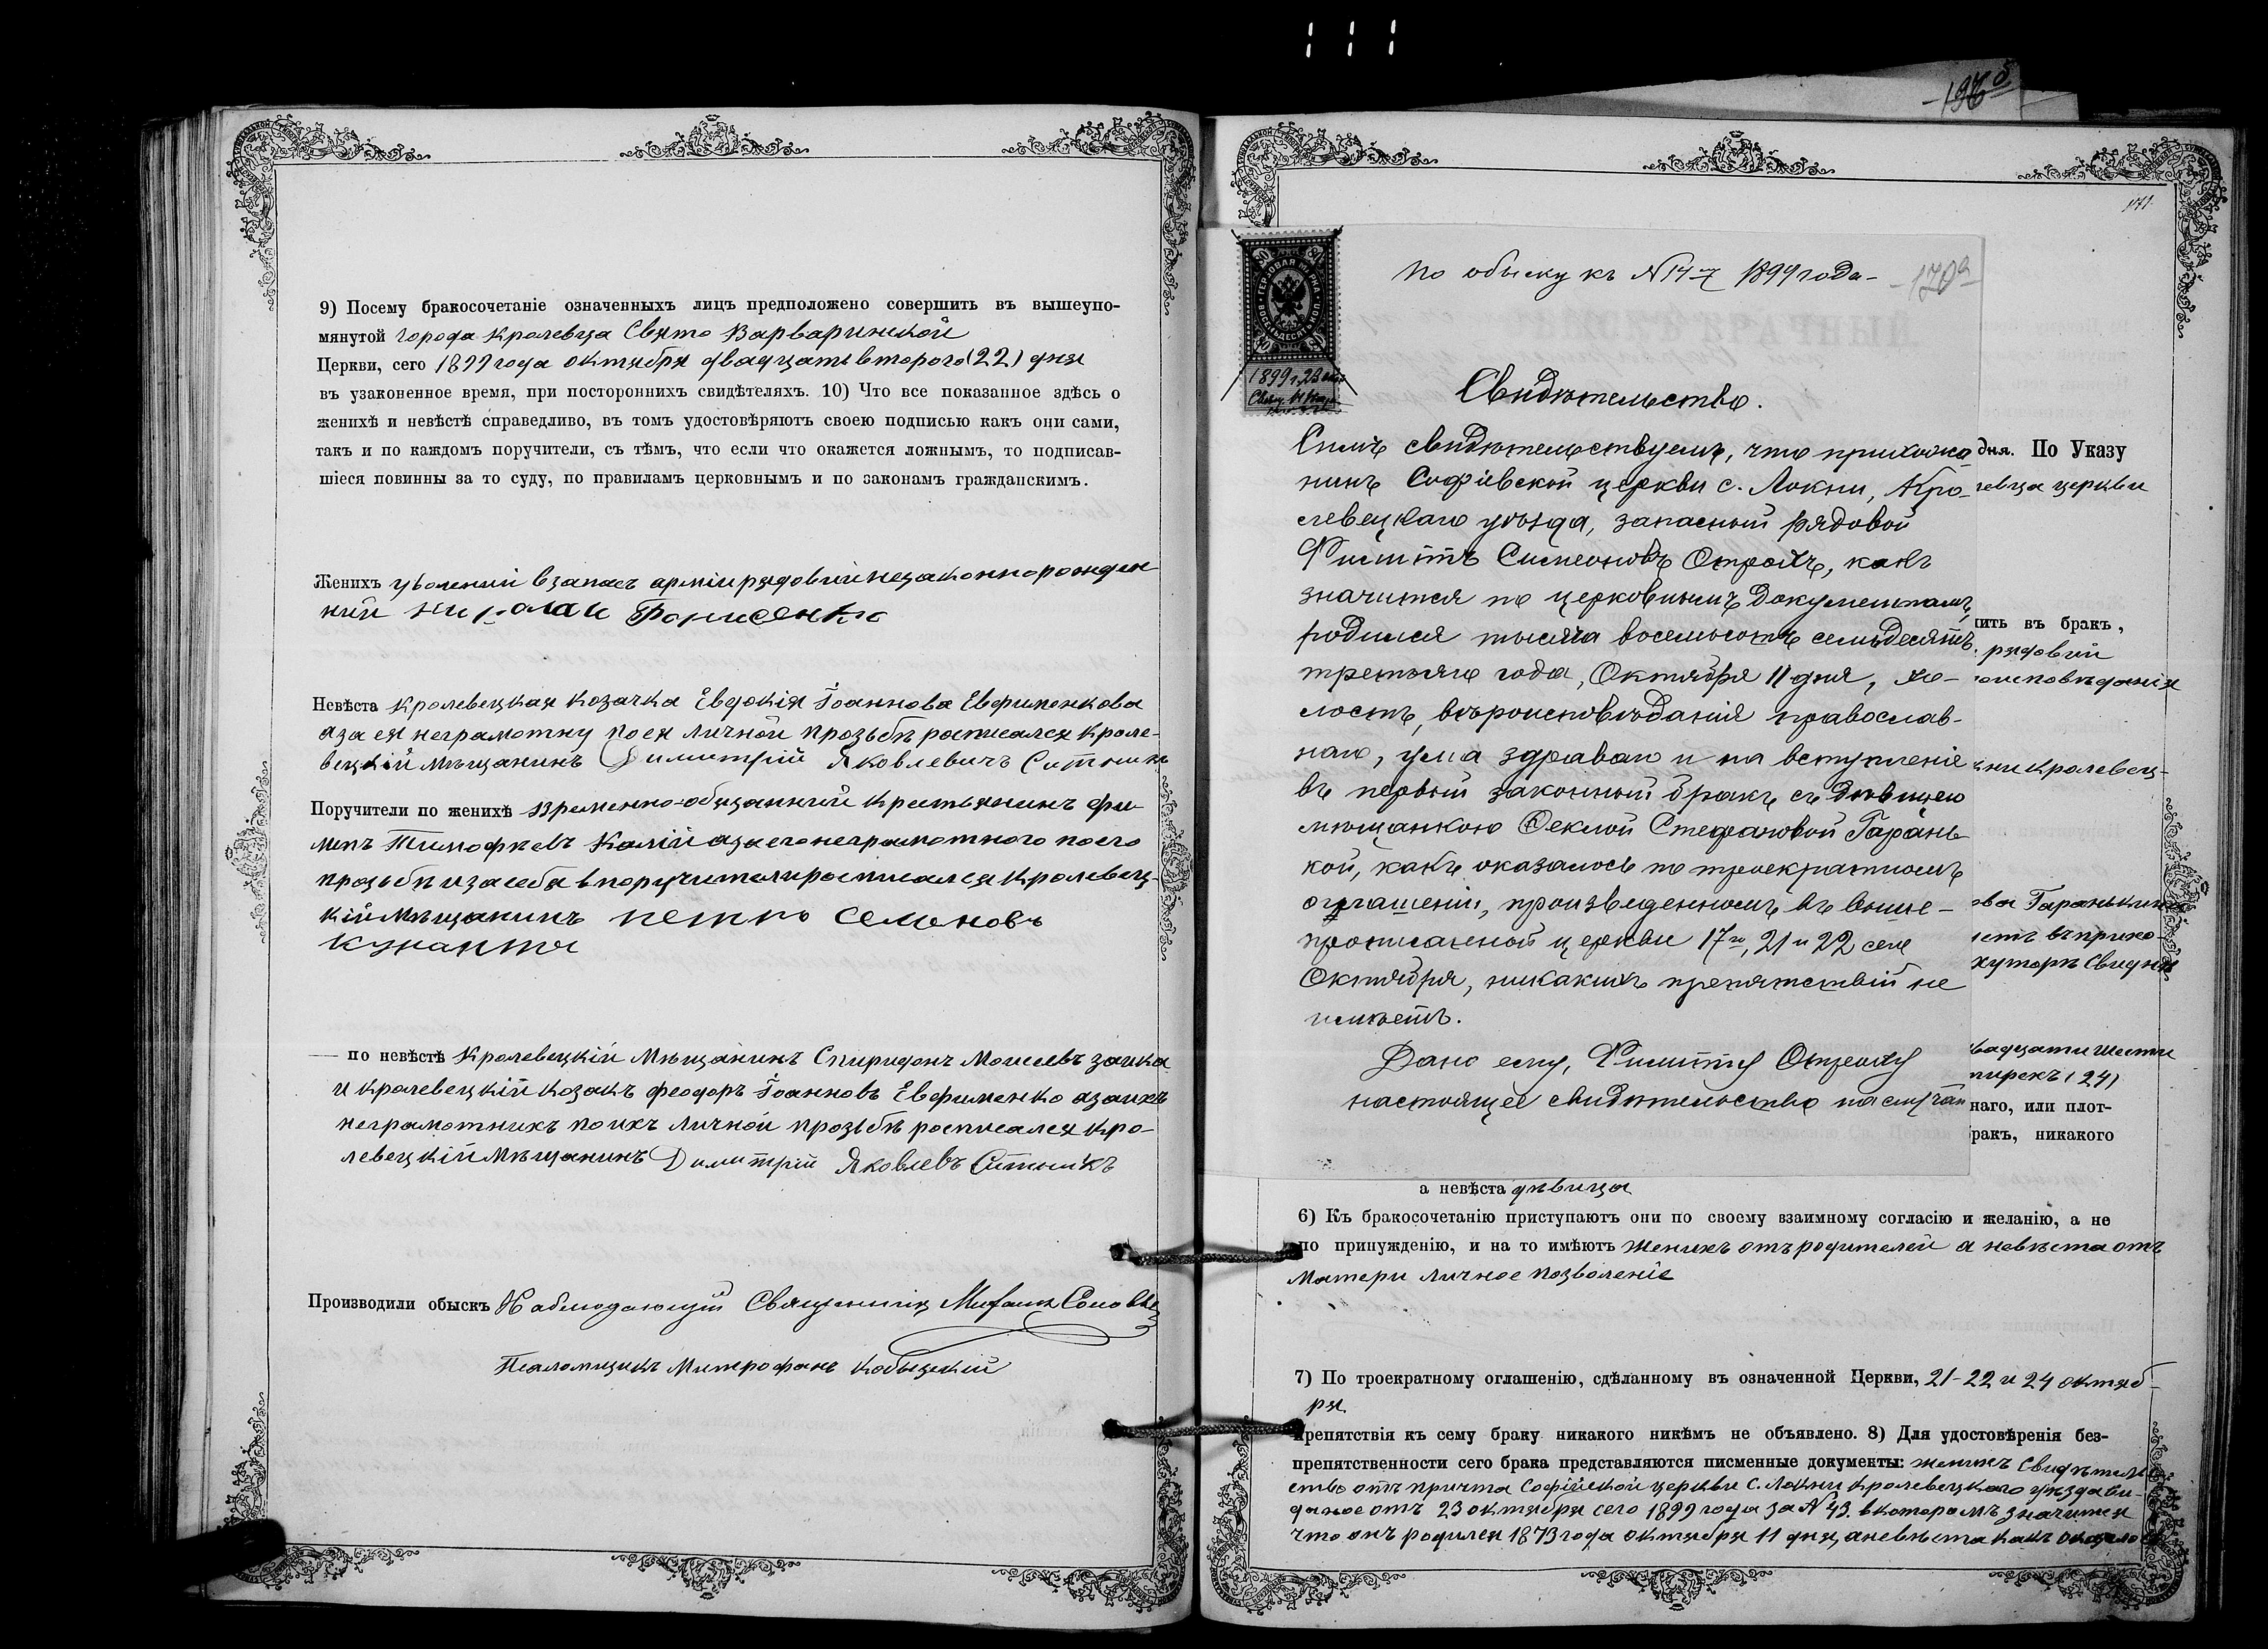 196 б
9) Посему бракосочетаніе означенныхъ лицъ предположено совершить въ вышеупо-
мянутой города Кролевца Свято Варваринской
Церкви, сего 1899 года октября двадцать второго (22) дня
въ узаконенное время, при постороннихъ свидѣтеляхъ. 10) Что все показанное здѣсь о
женихѣ и невѣстѣ справедливо, въ томъ удостовѣряютъ своею подписью какъ они сами,
такъ и по каждомъ поручители, съ тѣмъ, что если что окажется ложнымъ, то подписав-
шіеся повинны за то суду, по правиламъ церковнымъ и по законамъ гражданскимъ.
Женихъ уволений взапасъ арміи рядовий незаконнорожден
ний Николаи Борисенко
Невѣста Кролевецкая козачка Евдокія Іоаннова Евфименкова
аза ея неграмотну поея личной прозьбѣ росписался Кроле-
вецкій мѣщанинъ Димитрій Яковлевичъ Ситникъ
Поручители по женихѣ Временно-обязанний крестьянинъ Фи-
липъ Тимофѣевъ Калій аза его неграмотного поего
прозьбѣ изасебя впоручители росписался Кролевец-
кій мѣщанинъ петро семоновъ
— по невѣстѣ Кролевецкій Мѣщанинъ Спиридонъ Моисеевъ Заика
и кролевецкій козакъ Феодоръ Іоанновъ Евфименко азаихъ
неграмотнихъ поихъ личной прозьбѣ росписался Кро-
левецкій мѣщанинъ Димитрій Яковлевъ Ситникъ
Производили обыскъ Наблюдающій Священникъ Михаилъ
Псаломщикъ Митрофанъ Кобыцкій
171.
По обыску къ № 14-7 1899 года
170а
1899 г. 23 окт
Свидѣтельство.
Симъ свидѣтельствуемъ, что прихожа-
нинъ Софіевской церкви с. Локни, Кро-
левецкаго уѣзда, запасный рядовой
Филиппъ Симеоновъ Отрохъ, какъ
значится по церковнымъ документамъ,
родился тысяча восемьсотъ семьдесятъ
третьяго года, Октября 11 дня, хо-
лостъ, вѣроисповѣданія православ-
наго, ума здраваго и на вступленіе
въ первый законный бракъ съ дѣвицею
мѣщанкою Ѳеклой Стефановой Гарань-
кой, какъ оказалось по троекратномъ
оглашеніи, произведенномъ въ выше-
прописанной церкви 17го, 21 и 22 сего
Октября, никакихъ препятствій не
имѣетъ.
Дано ему, Филиппу Отроху
настоящее свидѣтельство на случай
дня. По Указу
левца церкви
ить въ бракъ,
рядовий
роисповѣданія
кни Кролевец-
ова Гаранькина
въ прихо-
хуторъ Свидня
вадцати шести
тирехъ (24)
наго, или плот-
ракъ, никакого
а невѣста дѣвица
6) Къ бракосочетанію приступаютъ они по своему взаимному согласію и желанію, а не
по принужденію, и на то имѣютъ Женихъ отъ родителей а невѣста отъ
Матери личное позволеніе
7) По троекратному оглашенію, сдѣланному въ означенной Церкви, 21-22 и 24 октяб-
ря
препятствія къ сему браку никакого никѣмъ не объявлено. 8) Для удостовѣренія без-
препятственности сего брака представляются писменные документы: женихъ Свидѣтель
ство отъ причта Софійской церкви С. Локни Кролевецкого уѣзда ви-
даное отъ 23 октября сего 1899 года за № 43. вкоторомъ значится
что онъ родился 1873 года октября 11 дня, аневѣста какъ оказало